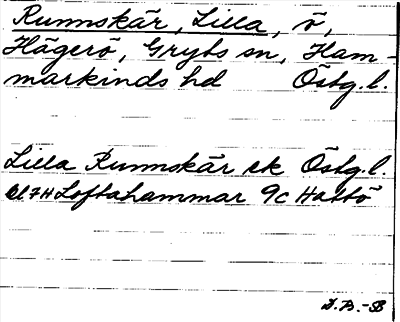 Runnskär, Lilla, ö,
Hägerö, Gryts sn, Ham-
markinds hd Östg. l.
Lilla Runnskär ek Östg. l.
Loftahammar 9c Hattö